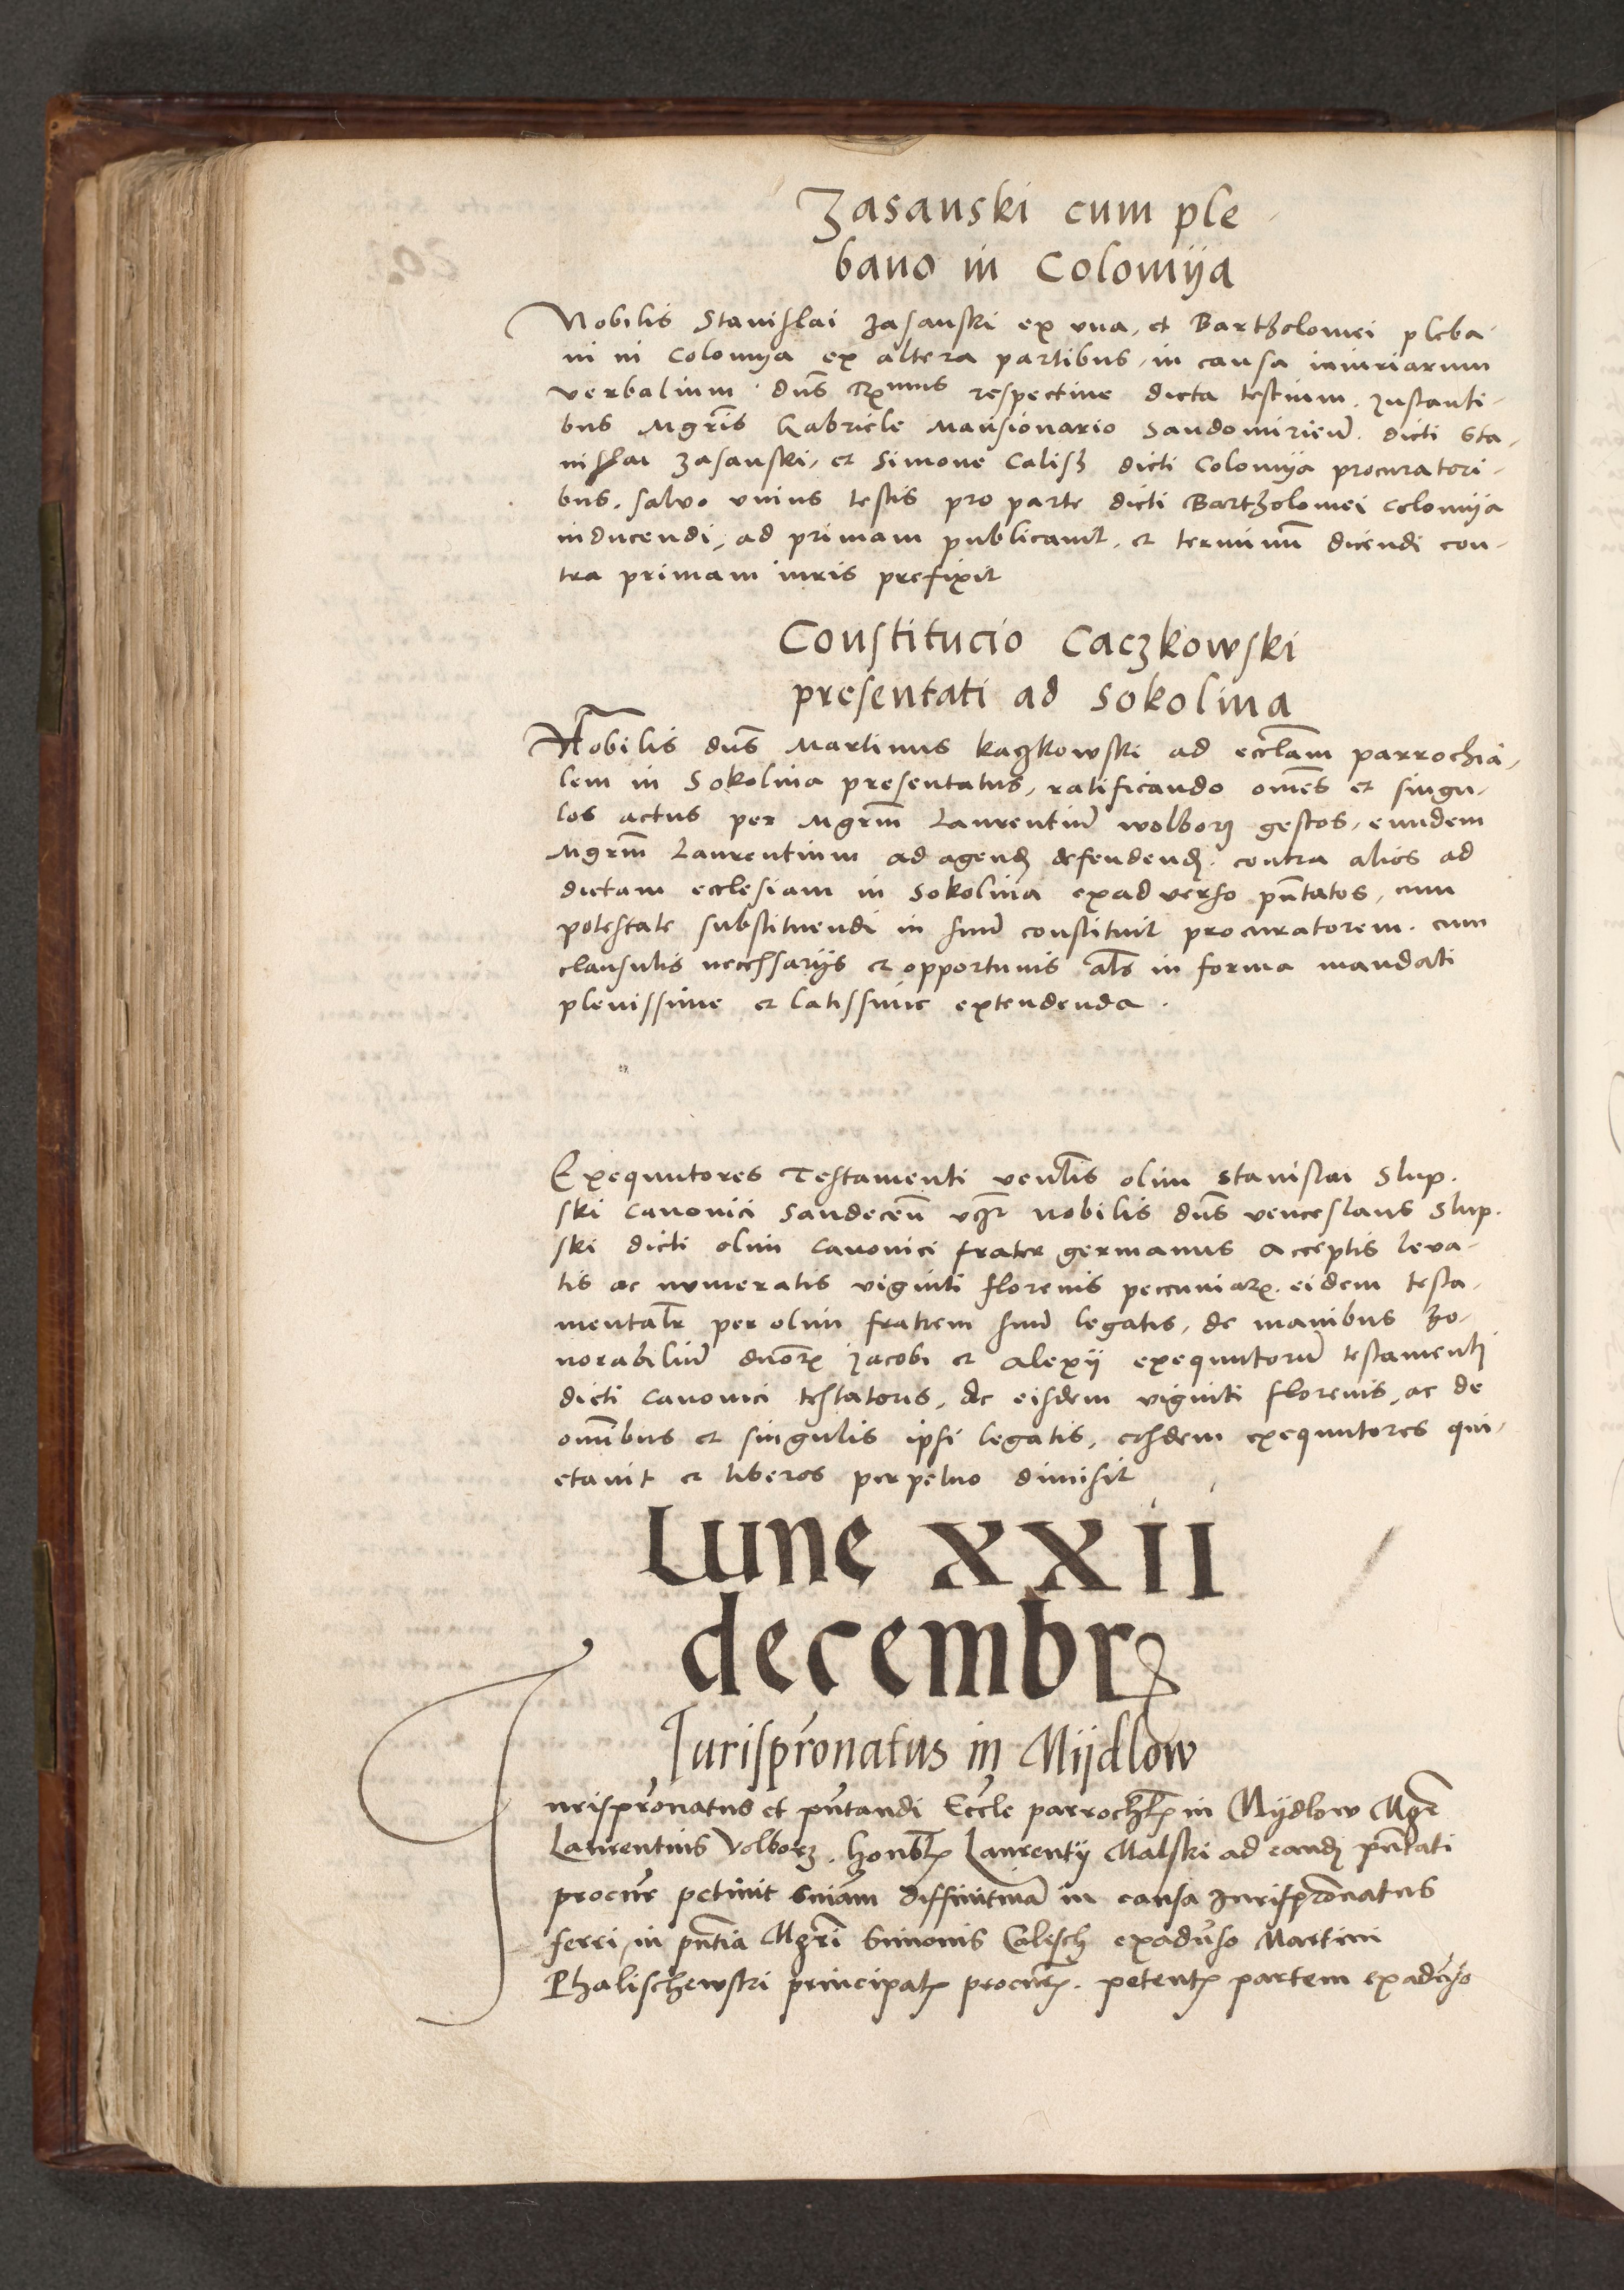 Zasanski cum ple
bano in Colomÿa
Nobilis Stanislai Zasanski ex vna, et Bartholomei pleba-
ni in Colomÿa ex altera partibus, in causa iniuriarum
verbalium. Dn̅s R̅ᵐᵘˢ respectiue dicta testium. Instanti-
bus Mgr̅is Gabriele Mansionario Sandomirien̅. dicti Sta-
nislai Zasanski, et Simone Calish dicti Colomÿa procuratori-
bus. saluo vnius testis pro parte dicti Bartholomei Colomÿa
inducendi, ad primam publicauit, et terminu̅ dicendi con-
tra primam iuris prefixit
Constitucio Caczkowski
presentati ad Sokolina
Nobilis dn̅s Martinus Kaczkowski ad eccl̅am parrochia-
lem in Sokolina presentatus, ratificando om̅es et singu-
los actus per Mgr̅m Laurentiu̅ wolborz gestos, eundem
Mgr̅m Laurentium ad agend̨ defendend̨. contra alios ad
dictam ecclesiam in Sokolina exaduerso pn̅tatos, cum
potestate substituendi in suu̅ constituit procuratorem. cum
clausulis necessarÿs et opportunis al̅s in forma mandati
plenissime et latissime extendenda.
Exequutores Testamenti ven̅lis olim Stanislai Slup-
ski Canonici Sandecen̅ nobilis dn̅s venceslaus Slup-
ski dicti olim Canonici frater germanus Acceptis leua-
tis ac numeratis viginti florenis peccuniaꝝ. eidem testa-
mental̅r per olim fratrem suu̅ legatis, de manibus ho-
norabiliu̅ dn̅oꝝ Jacobi et Alexÿ exequutoru̅ testamenti
dicti Canonici testatoris, de eisdem viginti florenis, ac de
om̅ibus et singulis ipsi legatis, eosdem exequutores qui-
etauit et liberos perpetuo dimisit
Lune XXII
decembrꝭ
Jurispr̅onatus in Mÿdlow
Jurispr̅onatus et pn̅tandi Eccl̅e parroch̅lꝭ in Mÿdlow Mgr̅
Laurentius Volborz. honbl̅ꝭ Laurentÿ Malski ad eand̨ pn̅tati
procur̅ petiuit sn̅iam diffinitiua̅ in causa Jurispr̅onatus
ferri, in pn̅tia Mgr̅i Simonis Calisch exadu̅so Martini
Phalischewski principalꝭ procur̅ꝭ. petentꝭ partem exadu̅so